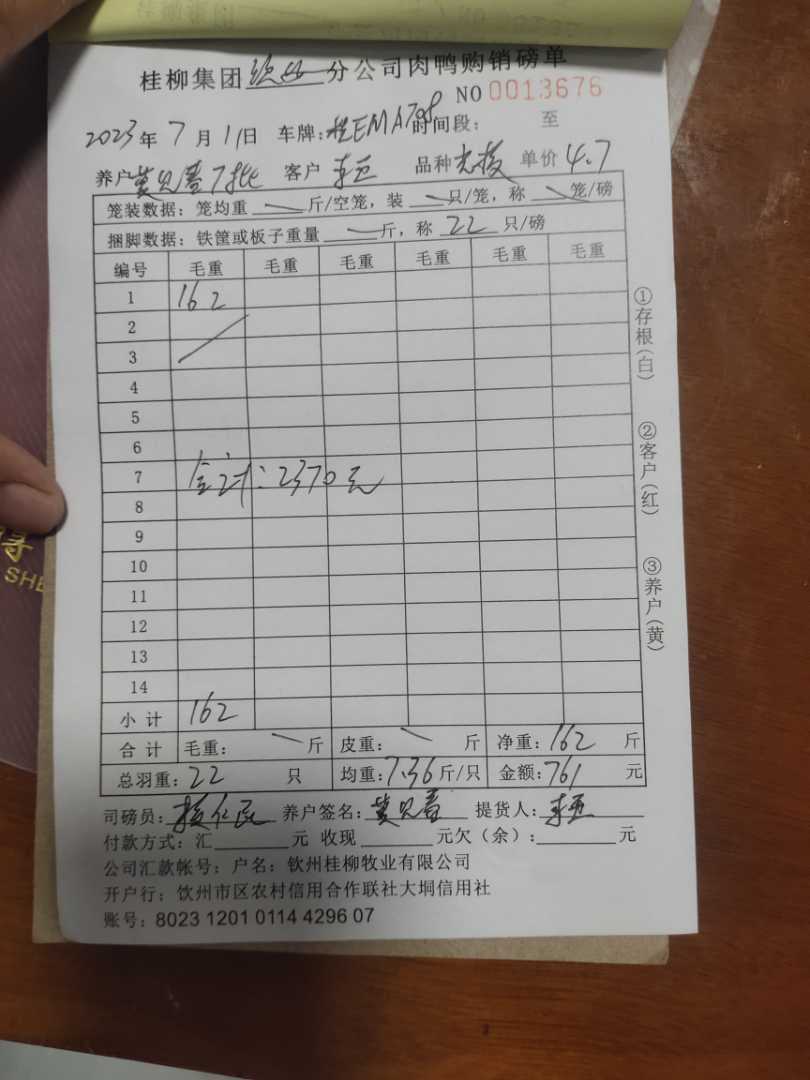 桂柳集团 分公司肉鸭购销磅单
NO 0013676
2023年 7月 11日 车牌:桂EMA708 时间段: 至
养户 黄见喜7批 客户 品种 单价 4.7
笼装数据:笼均重 斤/空笼,装 只/笼,称 笼/磅
捆脚数据:铁筐或板子重量 斤,称 22 只/磅
编号 毛重 毛重 毛重 毛重 毛重 毛重
1 162
2
3
4
5
6
7 合计:2370元
8
9
10
11
12
13
14
小计 162
合计 毛重: 斤 皮重: 斤 净重:162 斤
总羽重:22 只 均重:7.36斤/只 金额:761 元
司磅员: 养户签名:黄见喜 提货人:
付款方式:汇 元 收现 元欠(余): 元
公司汇款帐号:户名:钦州桂柳牧业有限公司
开户行:钦州市区农村信用合作联社大垌信用社
账号:8023 1201 0114 4296 07
①存根(白)
②客户(红)
③养户(黄)
SHE